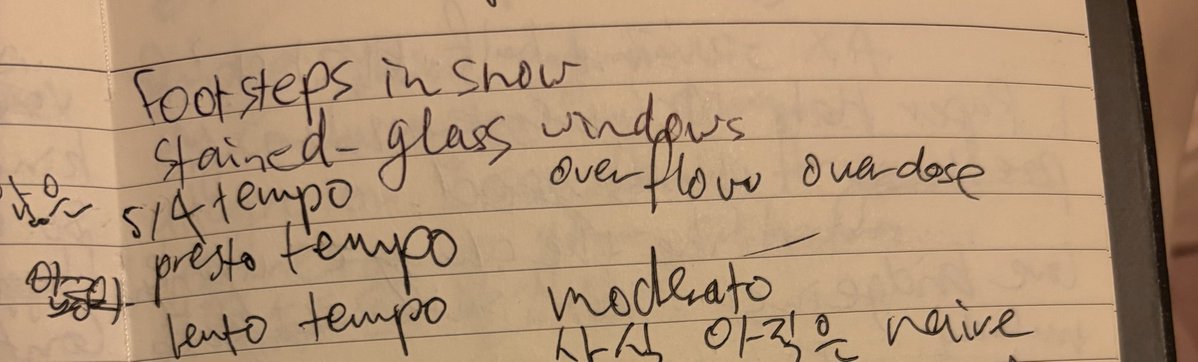 Footsteps in snow
stained-glass windows
5/4 tempo overflow overdose
presto tempo
lento tempo moderato
사실 아직은 naive